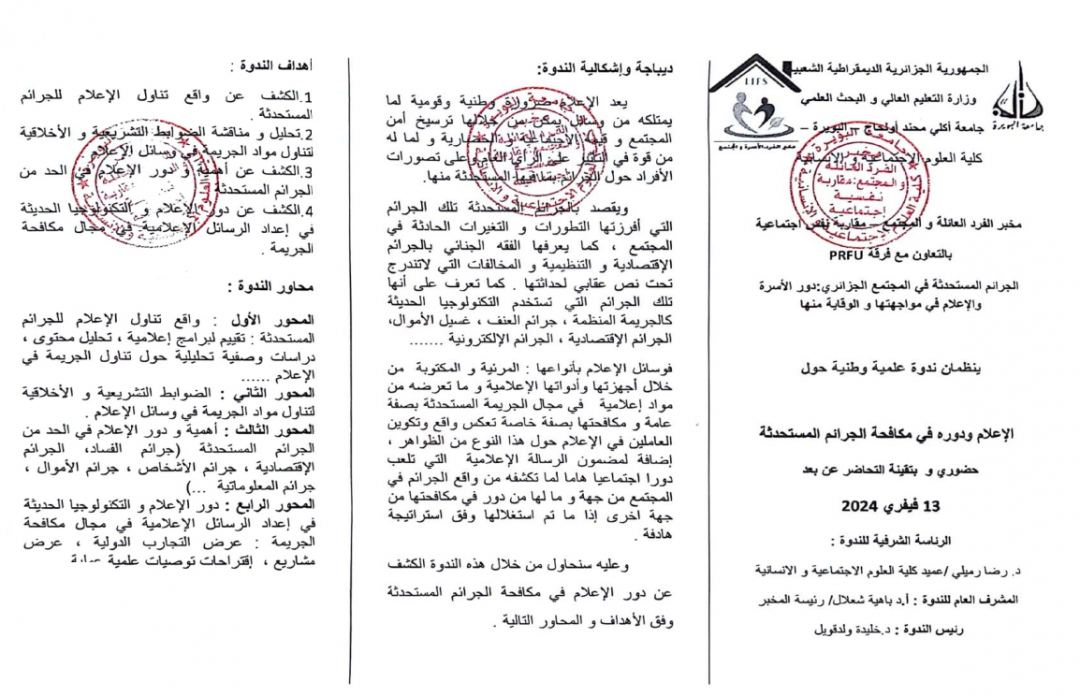 الجمهورية الجزائرية الديمقراطية الشعبية
وزارة التعليم العالي و البحث العلمي
جامعة أكلي محند أولحاج – البويرة –
كلية العلوم الاجتماعية و الإنسانية
جامعة البويرة
LIFS
مخبر الفرد والأسرة و المجتمع
مخبر الفرد العائلة و المجتمع – مقاربة نفس اجتماعية
بالتعاون مع فرقة PRFU
الجرائم المستحدثة في المجتمع الجزائري:دور الأسرة
والإعلام في مواجهتها و الوقاية منها
ينظمان ندوة علمية وطنية حول
الإعلام ودوره في مكافحة الجرائم المستحدثة
حضوري و بتقينة التحاضر عن بعد
13 فيفري 2024
الرئاسة الشرفية للندوة :
د. رضا رميلي /عميد كلية العلوم الاجتماعية و الانسانية
المشرف العام للندوة : أ.د باهية شعلال/ رئيسة المخبر
رئيس الندوة : د.خليدة ولدقويل
ديباجة وإشكالية الندوة:
يعد الإعلام ضرورة وطنية وقومية لما
يمتلكه من وسائل يمكن من خلالها ترسيخ أمن
المجتمع و قيمه الاجتماعية و الحضارية و لما له
من قوة في التأثير على الرأي العام وعلى تصورات
الأفراد حول الجرائم بما فيها المستحدثة منها.
ويقصد بالجرائم المستحدثة تلك الجرائم
التي أفرزتها التطورات و التغيرات الحادثة في
المجتمع ، كما يعرفها الفقه الجنائي بالجرائم
الإقتصادية و التنظيمية و المخالفات التي لاتندرج
تحت نص عقابي لحداثتها . كما تعرف على أنها
تلك الجرائم التي تستخدم التكنولوجيا الحديثة
كالجريمة المنظمة ، جرائم العنف ، غسيل الأموال،
الجرائم الإقتصادية ، الجرائم الإلكترونية .......
فوسائل الإعلام بأنواعها : المرئية و المكتوبة من
خلال أجهزتها وأدواتها الإعلامية و ما تعرضه من
مواد إعلامية في مجال الجريمة المستحدثة بصفة
عامة و مكافحتها بصفة خاصة تعكس واقع وتكوين
العاملين في الإعلام حول هذا النوع من الظواهر ،
إضافة لمضمون الرسالة الإعلامية التي تلعب
دورا اجتماعيا هاما لما تكشفه من واقع الجرائم في
المجتمع من جهة و ما لها من دور في مكافحتها من
جهة اخرى إذا ما تم استغلالها وفق استراتيجة
هادفة .
وعليه سنحاول من خلال هذه الندوة الكشف
عن دور الإعلام في مكافحة الجرائم المستحدثة
وفق الأهداف و المحاور التالية .
أهداف الندوة :
1.الكشف عن واقع تناول الإعلام للجرائم
المستحدثة .
2.تحليل و مناقشة الضوابط التشريعية و الأخلاقية
لتناول مواد الجريمة في وسائل الإعلام
3.الكشف عن أهمية و دور الإعلام في الحد من
الجرائم المستحدثة
4.الكشف عن دور الإعلام و التكنولوجيا الحديثة
في إعداد الرسائل الإعلامية في مجال مكافحة
الجريمة .
محاور الندوة :
المحور الأول : واقع تناول الإعلام للجرائم
المستحدثة : تقييم لبرامج إعلامية ، تحليل محتوى ،
دراسات وصفية تحليلية حول تناول الجريمة في
الإعلام ......
المحور الثاني : الضوابط التشريعية و الأخلاقية
لتناول مواد الجريمة في وسائل الإعلام .
المحور الثالث : أهمية و دور الإعلام في الحد من
الجرائم المستحدثة (جرائم الفساد، الجرائم
الإقتصادية ، جرائم الأشخاص ، جرائم الأموال ،
جرائم المعلوماتية ...)
المحور الرابع : دور الإعلام و التكنولوجيا الحديثة
في إعداد الرسائل الإعلامية في مجال مكافحة
الجريمة : عرض التجارب الدولية ، عرض
مشاريع ، إقتراحات توصيات علمية